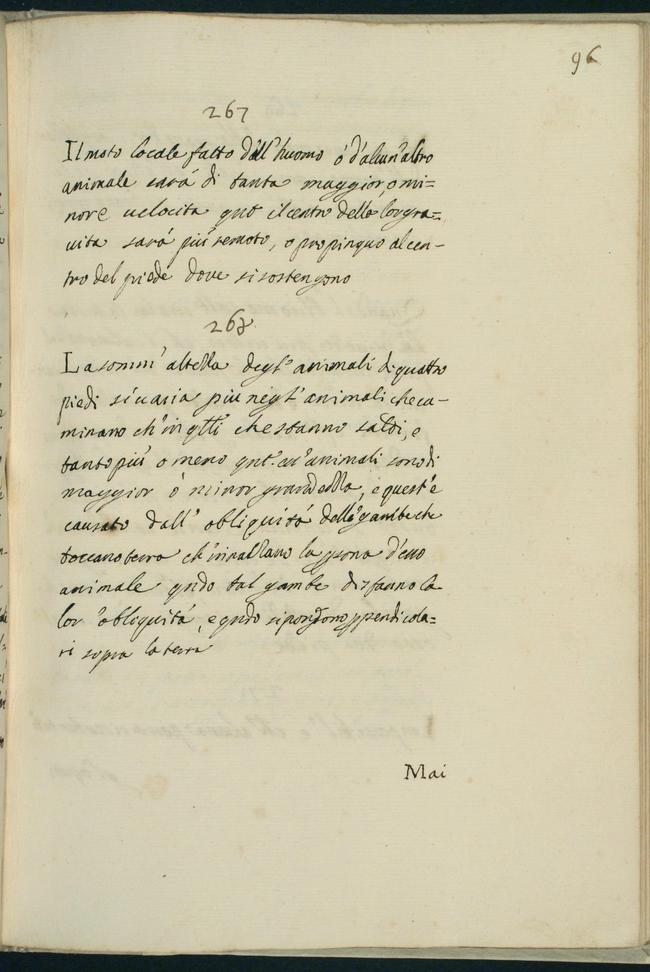 96
267
Il moto locale fatto dall'huomo ò d'alcun'altro
animale sarà di tanta maggior, o mi=
nore velocita qnto il centro della lor gra=
uita sarà più remoto, o propinquo al cen-
tro del piede dove si sostengono
268
La somm'altezza degl'animali di quattro
piedi si uaria piu negl'animali che ca-
minano ch'in qlli che stanno saldi, e
tanto più o meno qnto animali sono di
maggior ò minor grandezza, e quest'è
causato dall'obliquità delle gambe che
toccano terra ch'inalzano la d'esso
animale qndo tal gambe disfanno la
lor obliquità, e qndo si pongono ppendicola=
ri sopra la terra
Mai